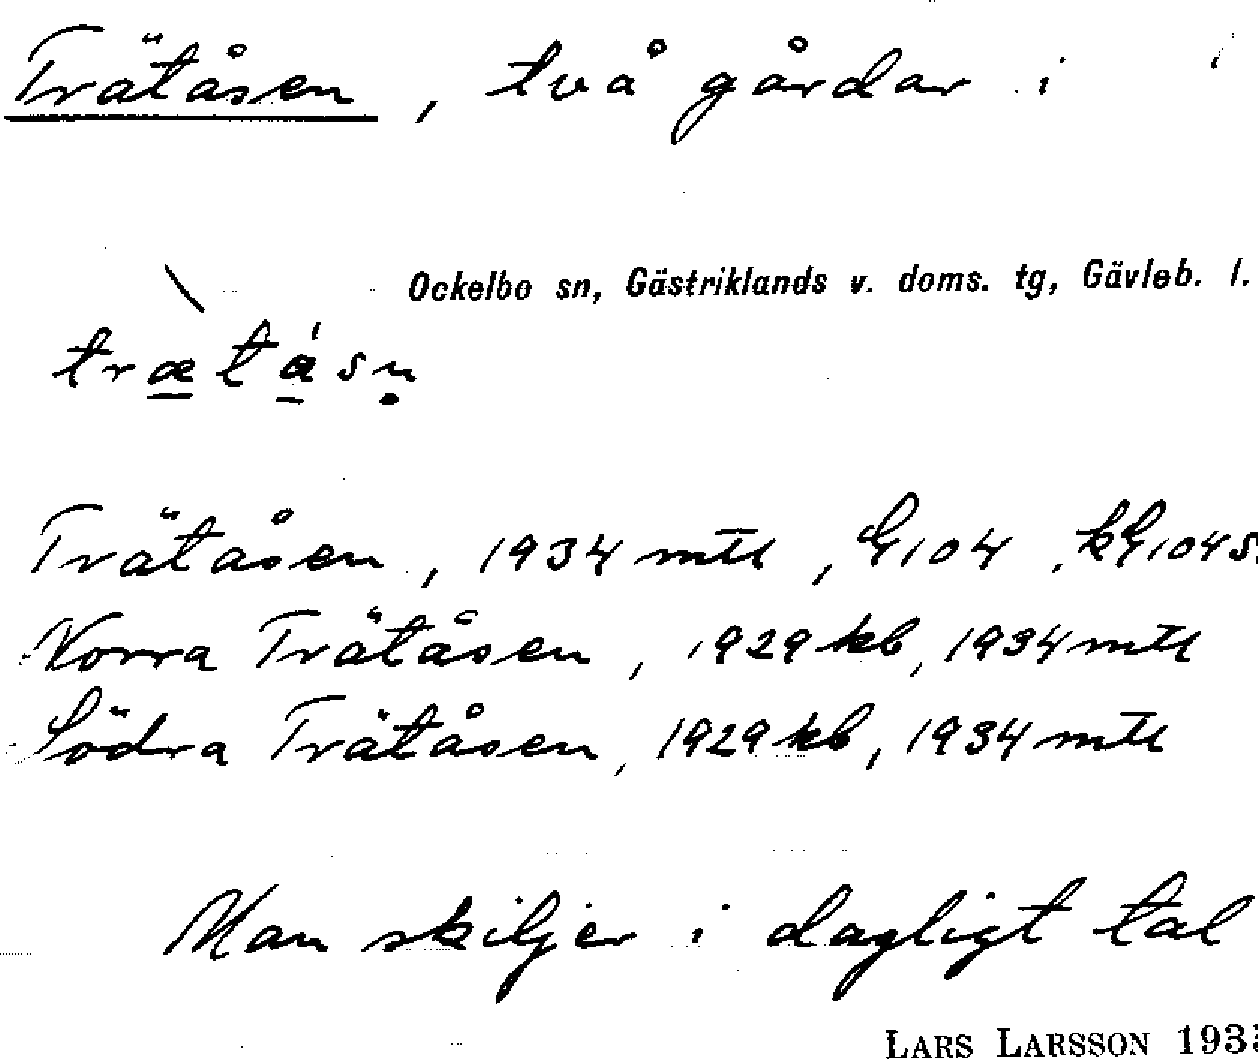 Trätåsen, två gårdar i
Ockelbo sn, Gästriklands v. doms. tg, Gävleb. l.
trætåsn
Trätåsen, 1934 mtl, G104, kG104s
Norra Trätåsen, 1929 kb, 1934 mtl
Södra Trätåsen, 1929 kb, 1934 mtl
Man skiljer i dagligt tal
LARS LARSSON 193